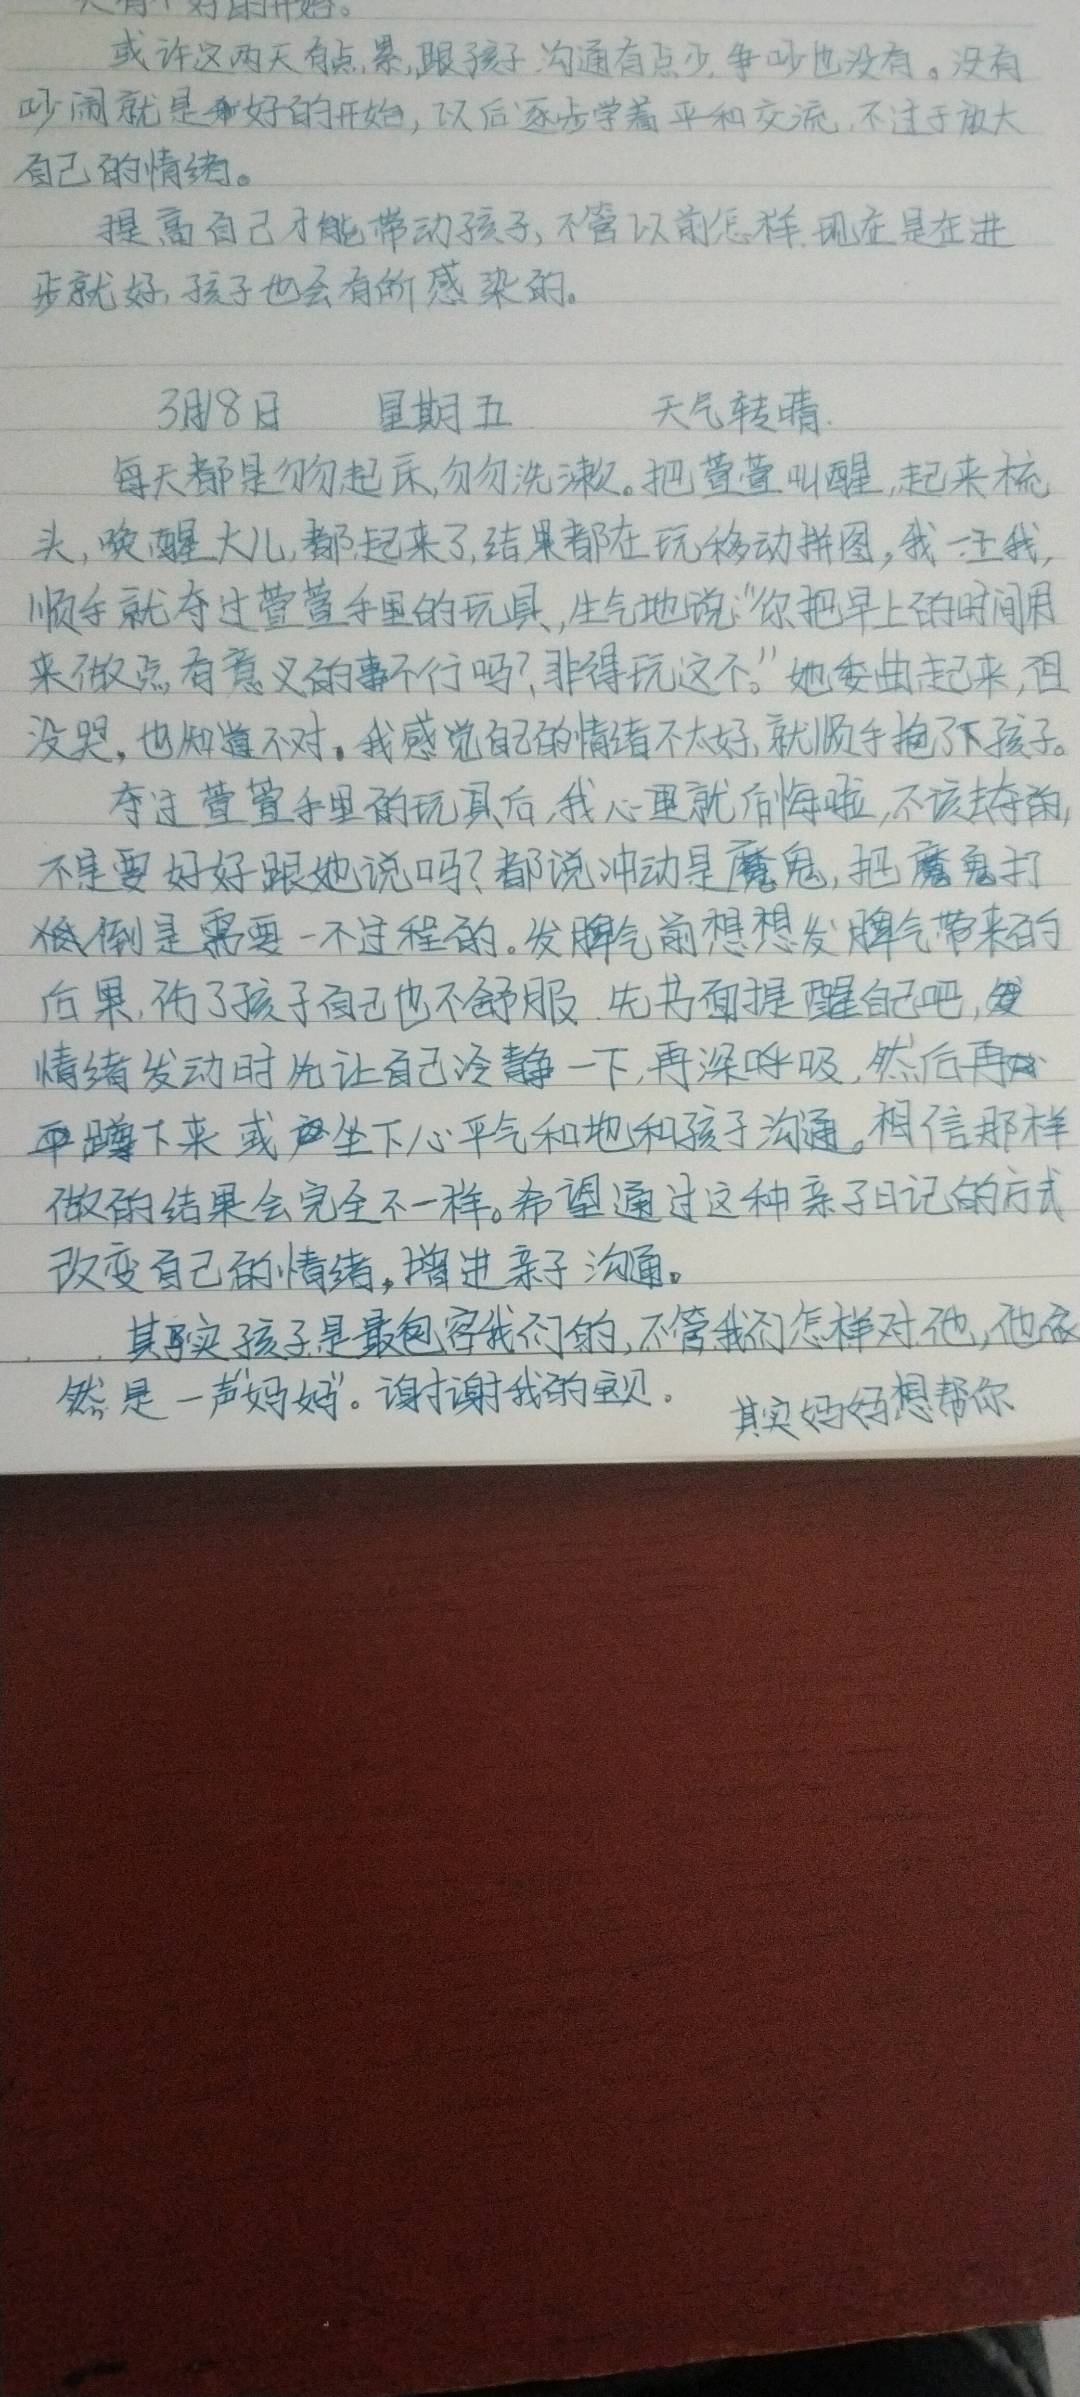 有个好的开始。
或许这两天有点累,跟孩子沟通有点少,争吵也没有。没有
吵闹就是好的开始,以后逐步学着平和交流,不过于放大
自己的情绪。
提高自己才能带动孩子,不管以前怎样,现在是在进
步就好,孩子也会有所感染的。
3月8日 星期五 天气转晴.
每天都是匆匆起床,匆匆洗漱。把萱萱叫醒,起来梳
头,唤醒大儿,都起来了,结果都在玩移动拼图,我一
顺手就夺过萱萱手里的玩具,生气地说:"你把早上的时间用
来做点有意义的事不行吗?非得玩这个。"她委曲起来,但
没哭,也知道不对。我感觉自己的情绪不太好,就顺手抱了下孩子。
夺过萱萱手里的玩具后,我心里就后悔啦,不该去夺的,
不是要好好跟她说吗?都说冲动是魔鬼,把魔鬼打
倒是需要一个过程的。发脾气前想想发脾气带来的
后果,伤了孩子自己也不舒服.先书面提醒自己吧,
情绪发动时先让自己冷静一下,再深呼吸,然后再
蹲下来或坐下心平气和地和孩子沟通。相信那样
做的结果会完全不一样。希望通过这种亲子日记的方式
改变自己的情绪,增进亲子沟通。
其实孩子是最包容我们的,不管我们怎样对他,他依
然是一声"妈妈"。谢谢我的宝贝.
其实妈妈想帮你